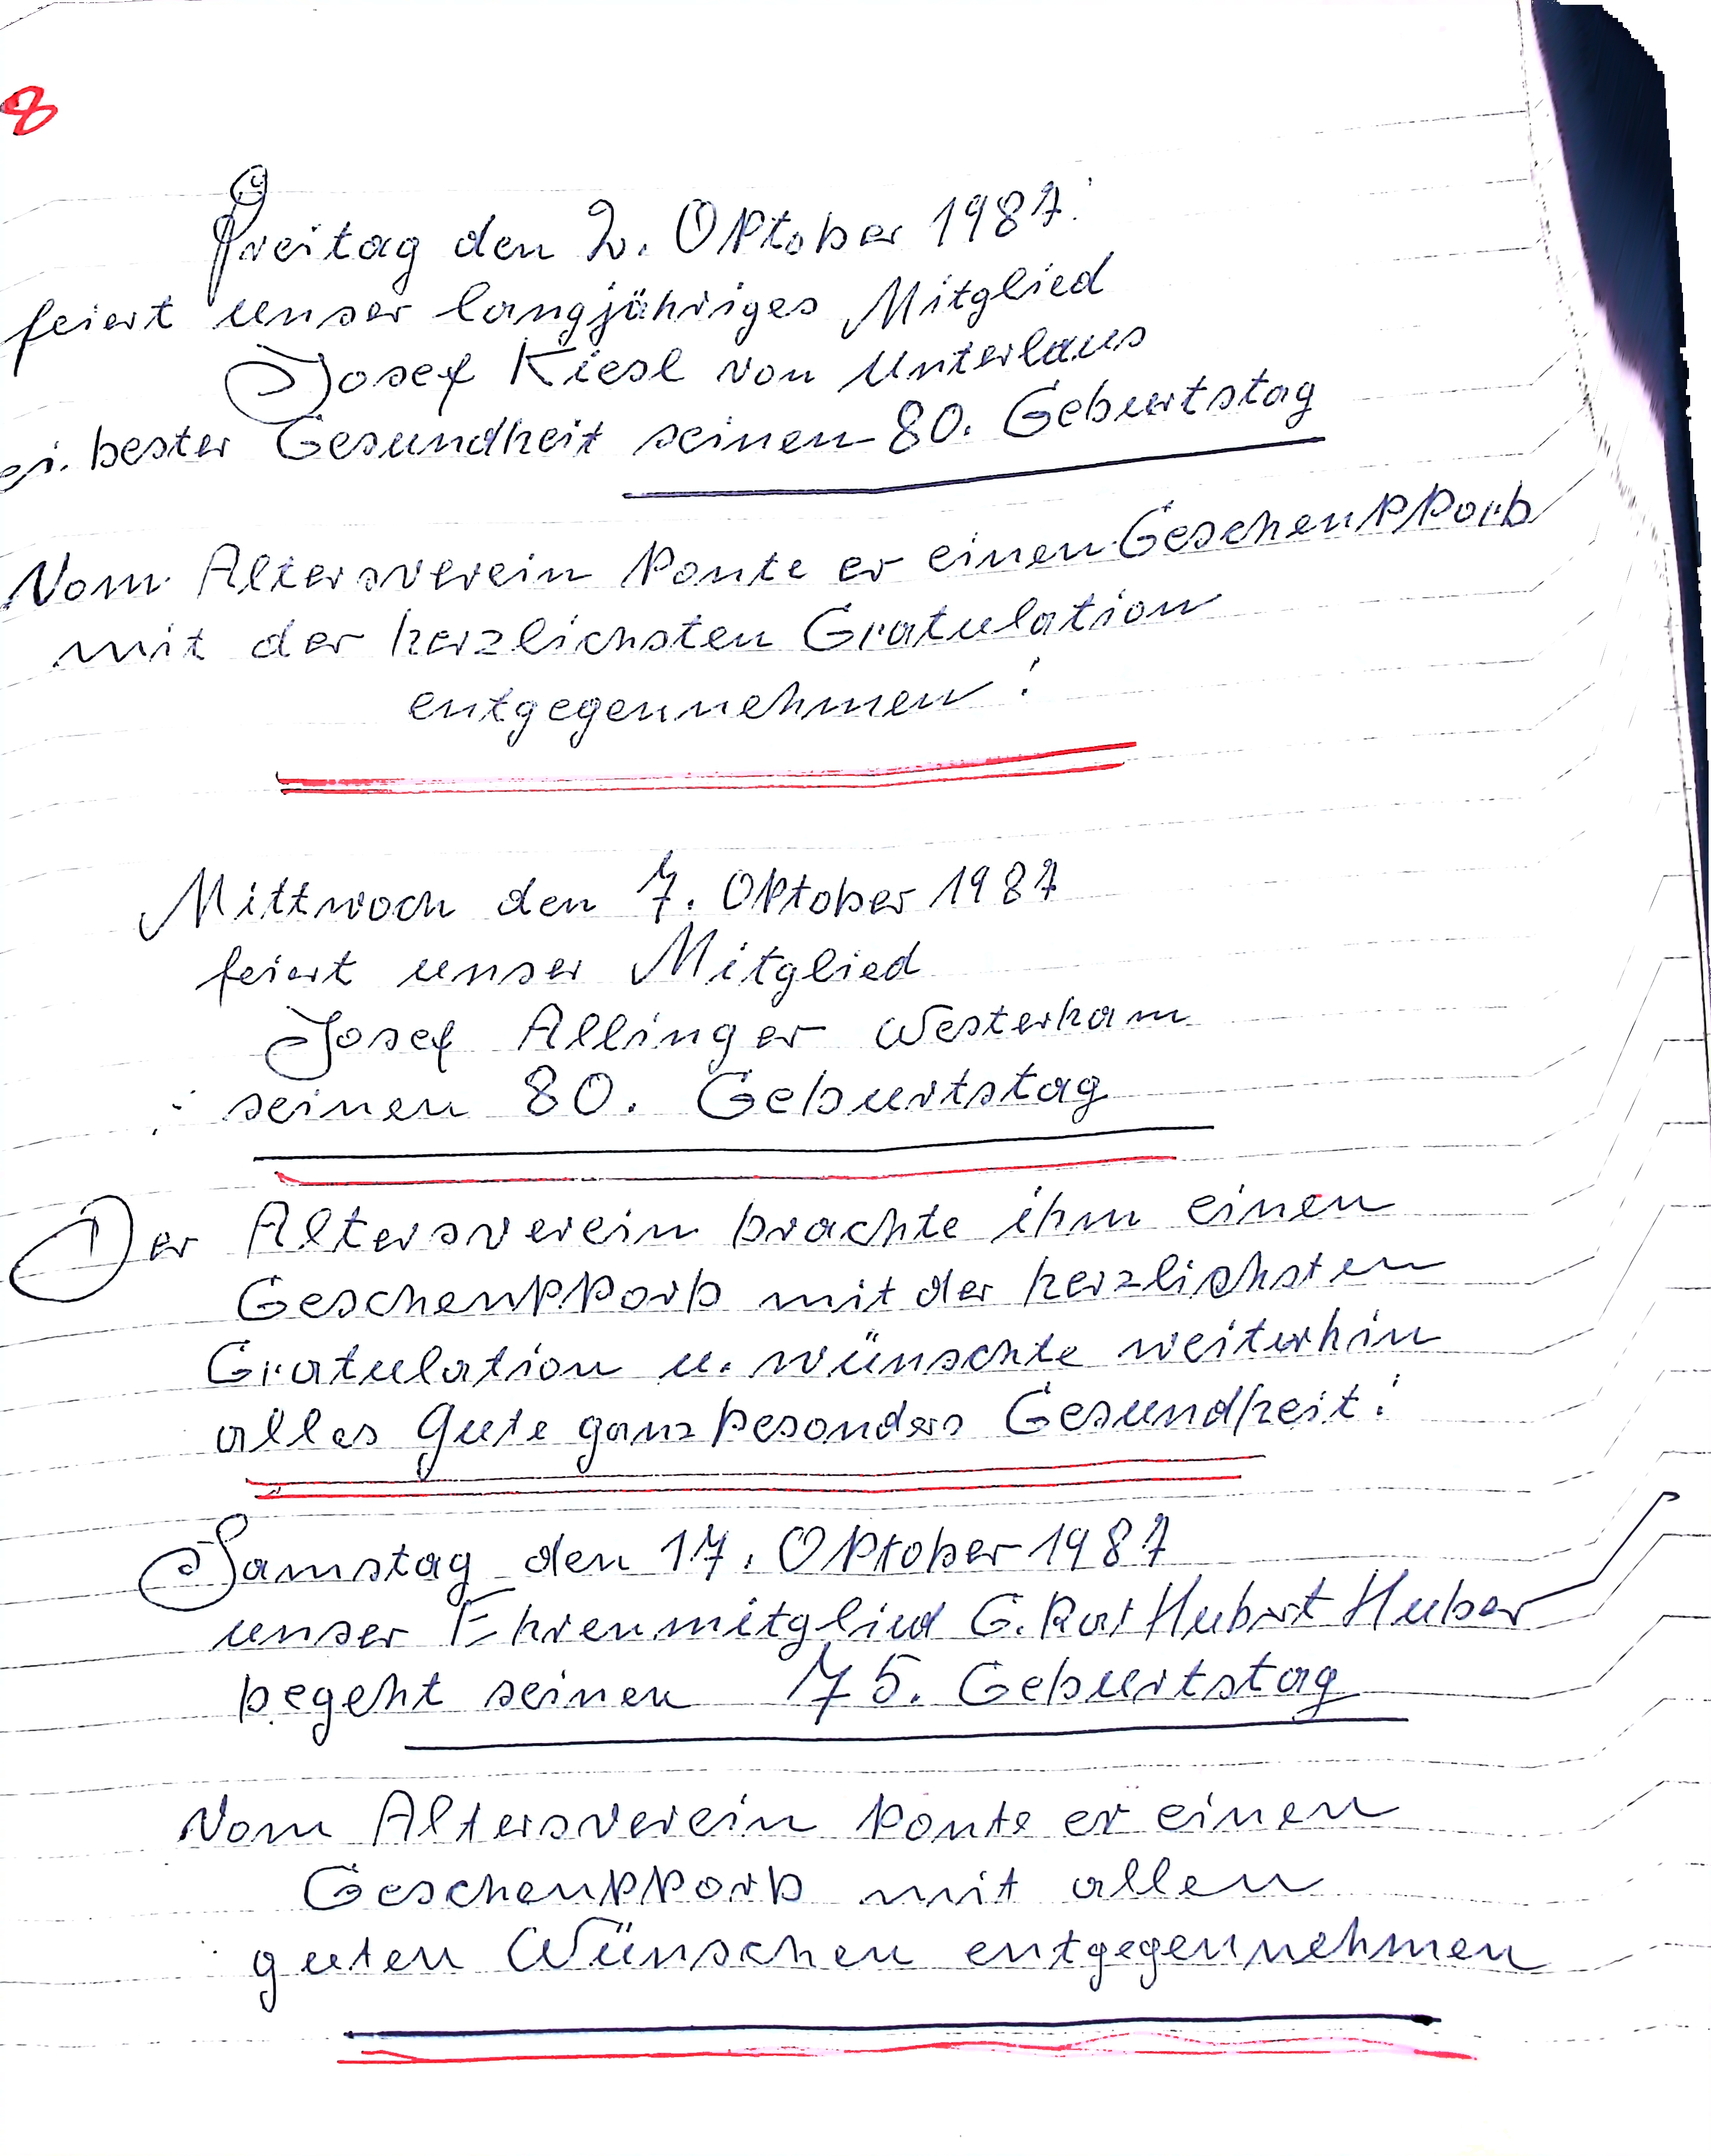 8
Freitag den 2. Oktober 1987!
feiert unser langjähriges Mitglied
Josef Kiesl von Unterlaus
ei bester Gesundheit seinen 80. Geburtstag
Vom Altersverein konte er einen Geschenkkorb
mit der herzlichsten Gratulation
entgegennehmen!
Mittwoch den 7. Oktober 1987
feiert unser Mitglied
Josef Allinger Westerham
seinen 80. Geburtstag
Der Altersverein brachte ihm einen
Geschenkkorb mit der herzlichsten
Gratulation u. wünschte weiterhin
alles Gute ganz besonders Gesundheit!
Samstag den 17. Oktober 1987
unser Ehrenmitglied G. Rat Hubert Huber
begeht seinen 75. Geburtstag
Vom Altersverein konte er einen
Geschenkkorb mit allen
guten Wünschen entgegennehmen